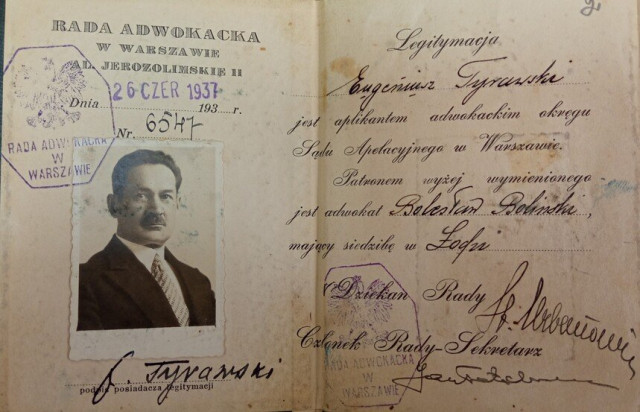 RADA ADWOKACKA
W WARSZAWIE
AL. JEROZOLIMSKIE 11
Dnia 26 CZER 1937 193 r.
Nr. 6547
RADA ADWOKACKA
W
WARSZAWIE
E. Tyrawski
podpis posiadacza legitymacji
Legitymacja
Eugenjusz Tyrawski
jest aplikantem adwokackim okręgu
Sądu Apelacyjnego w Warszawie.
Patronem wyżej wymienionego
jest adwokat Bolesław Beliński,
mający siedzibę w Łodzi
Dziekan Rady
Członek Rady-Sekretarz
RADA ADWOKACKA
W
WARSZAWIE